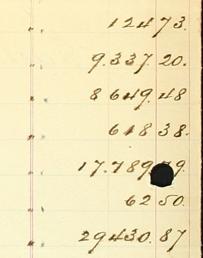 " " 124 73.
" " 9.337 20.
" " 8649.48
" " 618 38.
" " 17.789. 9.
" " 62 50.
" " 29430.87